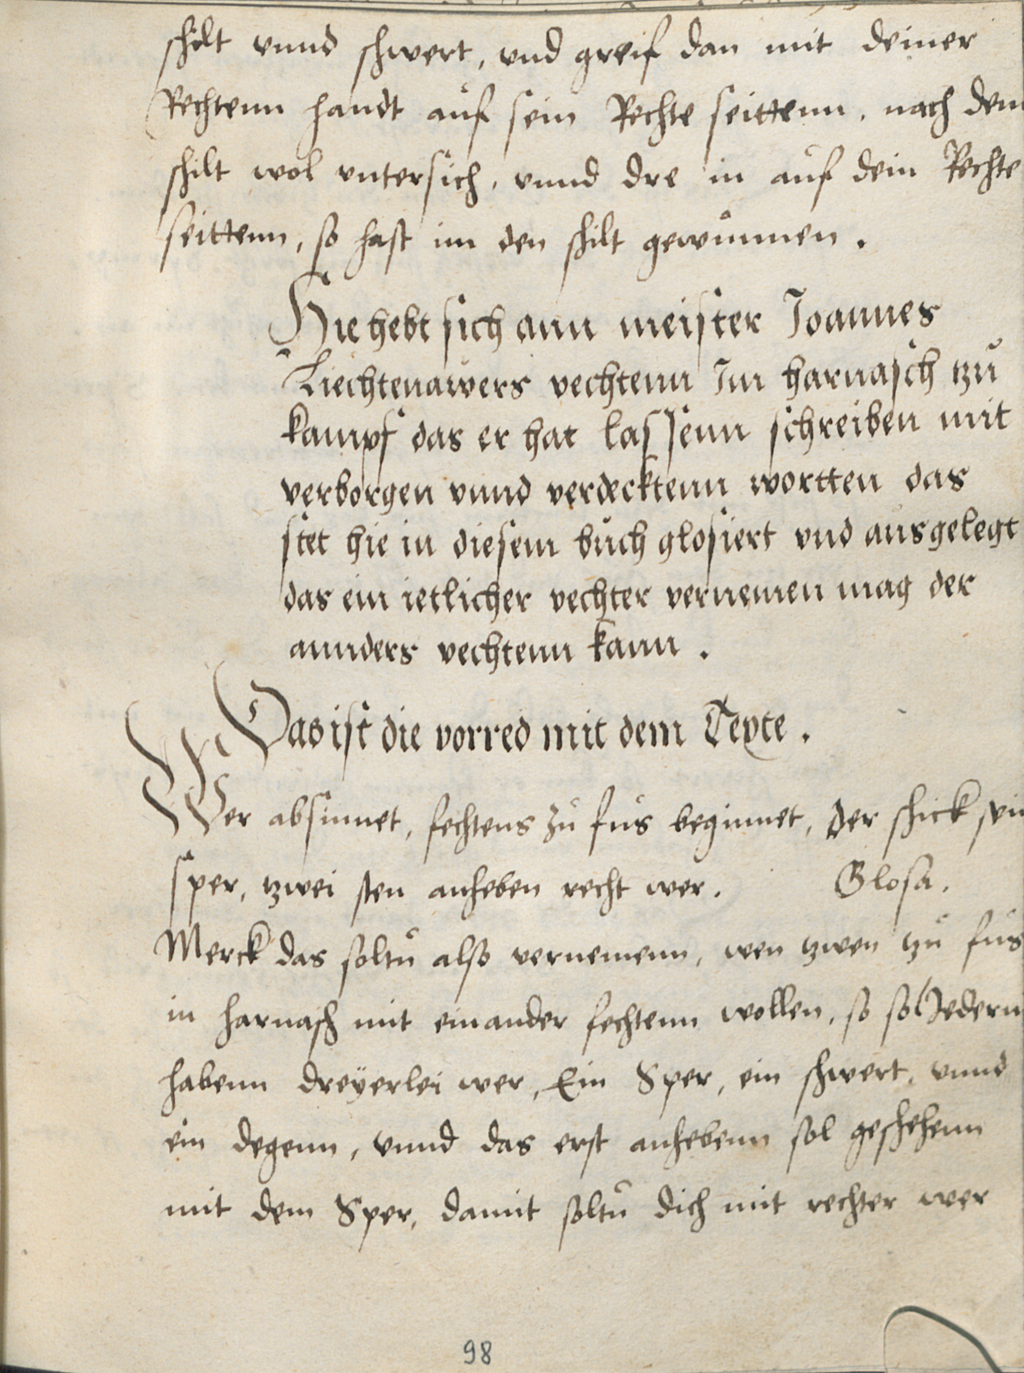 schilt vnnd schwert, vnd greif dan mit deiner
Rechtenn handt auf sein Rechte seittenn, nach dem
schilt wol untersich, vnnd dre in auf dein Rechte
seittenn, so hast im den schilt gewunnen.
Hie hebt sich ann meister Joannes
Liechtenawers vechtenn Im harnasch tzu
kampf das er hat lassenn schreiben mit
verborgen vnnd verdecktenn wortten das
stet hie in diesem buch glosiert vnd ausgelegt
das ein ietlicher vechter vernemen mag der
annders vechtenn kann.
Das ist die vorred mit dem Texte.
Wer absinnet, fechtens zu fus beginnet, der schick sein
sper, tzwei sten anheben recht wer. Glosa.
Merck das soltu also vernemenn, wen tzwen tzu fus
in harnasch mit einander fechtenn wollen, so sol Jedern
habenn dreyerlei wer, Ein Sper, ein schwert, vnnd
ein degenn, vnnd das erst anhebenn sol geschehenn
mit dem Sper, damit soltu dich mit rechter wer
98